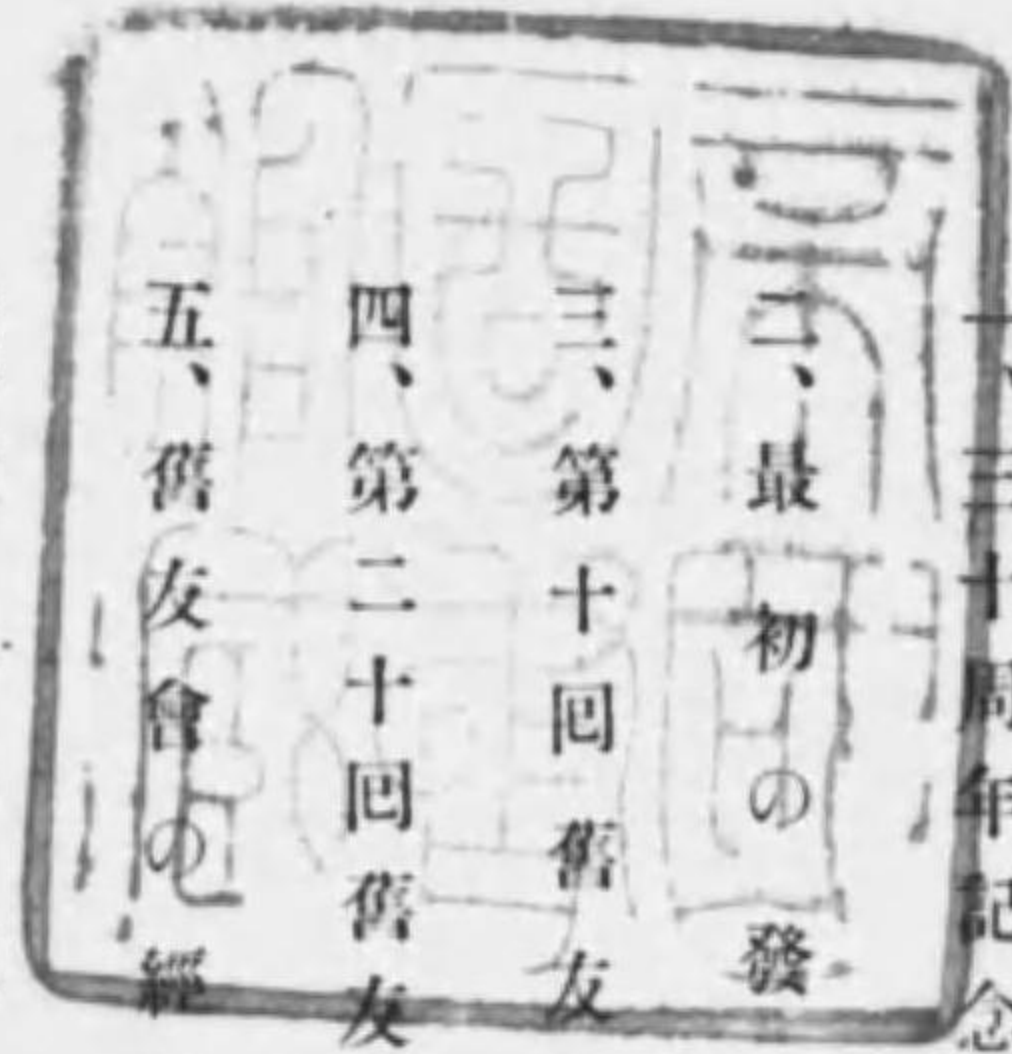 一、三十周年記念
二、最初の發
三、第十回舊友
四、第二十回舊友
五、舊友會の經